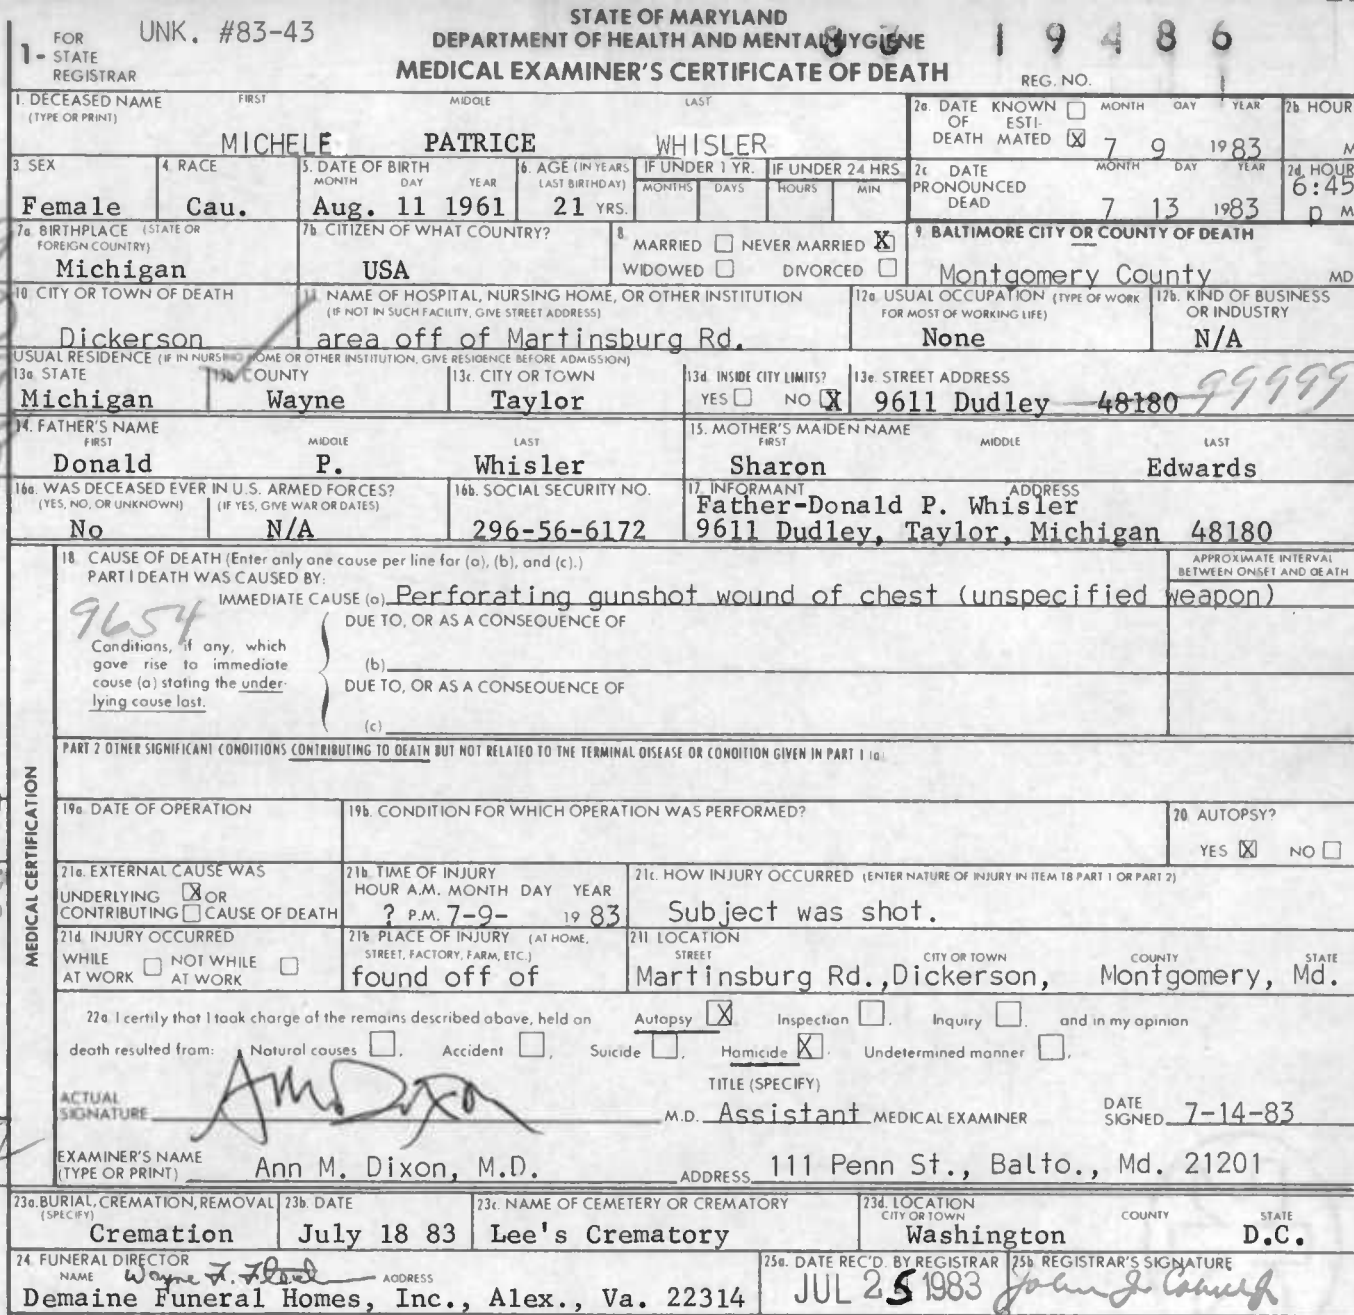 STATE OF MARYLAND
DEPARTMENT OF HEALTH AND MENTAL HYGIENE
MEDICAL EXAMINER'S CERTIFICATE OF DEATH
1- FOR STATE REGISTRAR
UNK. #83-43
83 19486
REG. NO.
1. DECEASED NAME (TYPE OR PRINT) FIRST MIDDLE LAST
MICHELE PATRICE WHISLER
2a. DATE OF DEATH KNOWN ☐ ESTIMATED ☒ MONTH DAY YEAR
7 9 1983
2b. HOUR
M
3. SEX
Female
4. RACE
Cau.
5. DATE OF BIRTH MONTH DAY YEAR
Aug. 11 1961
6. AGE (IN YEARS LAST BIRTHDAY)
21 YRS.
IF UNDER 1 YR. MONTHS DAYS
IF UNDER 24 HRS HOURS MIN
2c. DATE PRONOUNCED DEAD MONTH DAY YEAR
7 13 1983
2d. HOUR
6:45 p M
7a. BIRTHPLACE (STATE OR FOREIGN COUNTRY)
Michigan
7b. CITIZEN OF WHAT COUNTRY?
USA
8. MARRIED ☐ NEVER MARRIED ☒
WIDOWED ☐ DIVORCED ☐
9. BALTIMORE CITY OR COUNTY OF DEATH
Montgomery County MD
10. CITY OR TOWN OF DEATH
Dickerson
11. NAME OF HOSPITAL, NURSING HOME, OR OTHER INSTITUTION
(IF NOT IN SUCH FACILITY, GIVE STREET ADDRESS)
area off of Martinsburg Rd.
12a. USUAL OCCUPATION (TYPE OF WORK FOR MOST OF WORKING LIFE)
None
12b. KIND OF BUSINESS OR INDUSTRY
N/A
USUAL RESIDENCE (IF IN NURSING HOME OR OTHER INSTITUTION, GIVE RESIDENCE BEFORE ADMISSION)
13a. STATE
Michigan
13b. COUNTY
Wayne
13c. CITY OR TOWN
Taylor
13d. INSIDE CITY LIMITS?
YES ☐ NO ☒
13e. STREET ADDRESS
9611 Dudley 48180 99999
14. FATHER'S NAME FIRST MIDDLE LAST
Donald P. Whisler
15. MOTHER'S MAIDEN NAME FIRST MIDDLE LAST
Sharon Edwards
16a. WAS DECEASED EVER IN U.S. ARMED FORCES?
(YES, NO, OR UNKNOWN) (IF YES, GIVE WAR OR DATES)
No N/A
16b. SOCIAL SECURITY NO.
296-56-6172
17. INFORMANT ADDRESS
Father-Donald P. Whisler
9611 Dudley, Taylor, Michigan 48180
MEDICAL CERTIFICATION
18. CAUSE OF DEATH (Enter only one cause per line for (a), (b), and (c).)
PART I DEATH WAS CAUSED BY:
APPROXIMATE INTERVAL BETWEEN ONSET AND DEATH
IMMEDIATE CAUSE (a) Perforating gunshot wound of chest (unspecified weapon)
9654
DUE TO, OR AS A CONSEQUENCE OF
Conditions, if any, which gave rise to immediate cause (a) stating the underlying cause last.
(b)
DUE TO, OR AS A CONSEQUENCE OF
(c)
PART 2 OTHER SIGNIFICANT CONDITIONS CONTRIBUTING TO DEATH BUT NOT RELATED TO THE TERMINAL DISEASE OR CONDITION GIVEN IN PART 1 (a)
19a. DATE OF OPERATION
19b. CONDITION FOR WHICH OPERATION WAS PERFORMED?
20. AUTOPSY?
YES ☒ NO ☐
21a. EXTERNAL CAUSE WAS
UNDERLYING ☒ OR
CONTRIBUTING ☐ CAUSE OF DEATH
21b. TIME OF INJURY
HOUR A.M. MONTH DAY YEAR
? P.M. 7-9- 1983
21c. HOW INJURY OCCURRED (ENTER NATURE OF INJURY IN ITEM 18 PART 1 OR PART 2)
Subject was shot.
21d. INJURY OCCURRED
WHILE AT WORK ☐ NOT WHILE AT WORK ☐
21e. PLACE OF INJURY (AT HOME, STREET, FACTORY, FARM, ETC.)
found off of
21f. LOCATION STREET CITY OR TOWN COUNTY STATE
Martinsburg Rd., Dickerson, Montgomery, Md.
22a. I certify that I took charge of the remains described above, held an Autopsy ☒ Inspection ☐, Inquiry ☐. and in my opinion
death resulted from: Natural causes ☐, Accident ☐, Suicide ☐, Homicide ☒. Undetermined manner ☐,
ACTUAL SIGNATURE AM Dixon M.D.
TITLE (SPECIFY)
Assistant MEDICAL EXAMINER
DATE SIGNED 7-14-83
EXAMINER'S NAME (TYPE OR PRINT) Ann M. Dixon, M.D.
ADDRESS 111 Penn St., Balto., Md. 21201
23a. BURIAL, CREMATION, REMOVAL (SPECIFY)
Cremation
23b. DATE
July 18 83
23c. NAME OF CEMETERY OR CREMATORY
Lee's Crematory
23d. LOCATION CITY OR TOWN COUNTY STATE
Washington D.C.
24. FUNERAL DIRECTOR
NAME ADDRESS
Demaine Funeral Homes, Inc., Alex., Va. 22314
25a. DATE REC'D. BY REGISTRAR
JUL 25 1983
25b. REGISTRAR'S SIGNATURE